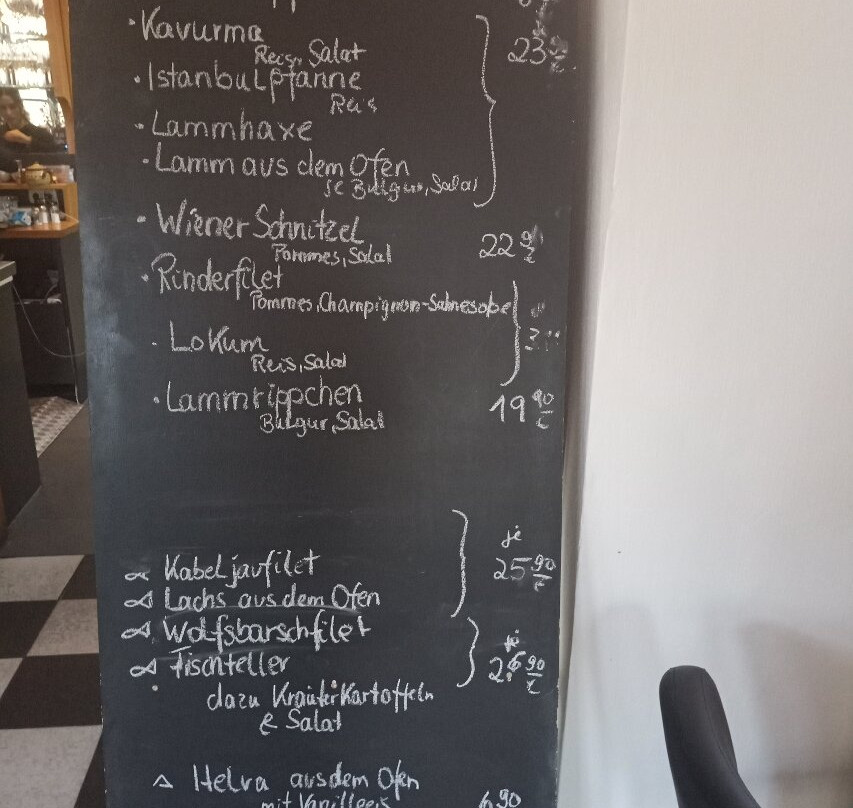 · Kavurma
Reis, Salat
23
· Istanbulpfanne
Reis
· Lammhaxe
· Lamm aus dem Ofen
je Bulgur, Salat
· Wiener Schnitzel 22
Pommes, Salat
· Rinderfilet
Pommes, Champignon-Sahnesoße
· Lokum
Reis, Salat
· Lammrippchen 19 90 €
Bulgur, Salat
je
Kabeljaufilet 25 90 €
Lachs aus dem Ofen
Wolfsbarschfilet je
Fischteller 26 90 €
dazu Kräuterkartoffeln
& Salat
Helva aus dem Ofen
mit Vanilleeis 6 90